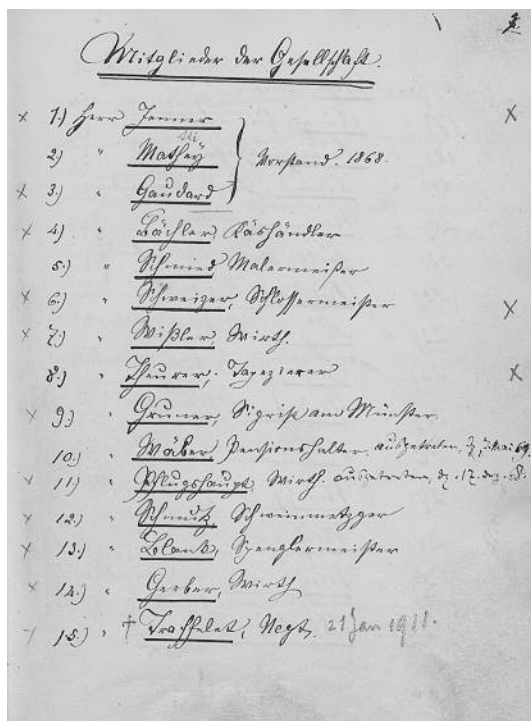 Mitglieder der Gesellschaft.
x 1.) Herr Jenner x
2.) " Mathey } Vorstand. 1868.
x 3.) " Gaudard
x 4) " Bächler, Käshändler
5.) " Schmied Malermeister
x 6.) " Schweizer, Schlossermeister x
x 7.) " Wißler, Wirth.
8.) " Theurer, Tapezierer x
x 9.) " Gruner, Sigrist am Münster
10.) " Wäber, Pensionshalter, ausgetreten, Mai 69.
x 11.) " Pflugshaupt, Wirth. ausgetreten, d. 17. Dez. 68.
x 12.) " Schmutz Schweinmetzger
x 13.) " Blank, Spenglermeister
x 14.) " Gerber, Wirth
x 15.) " † Trachselet, Negt. 21 Jan 1911.